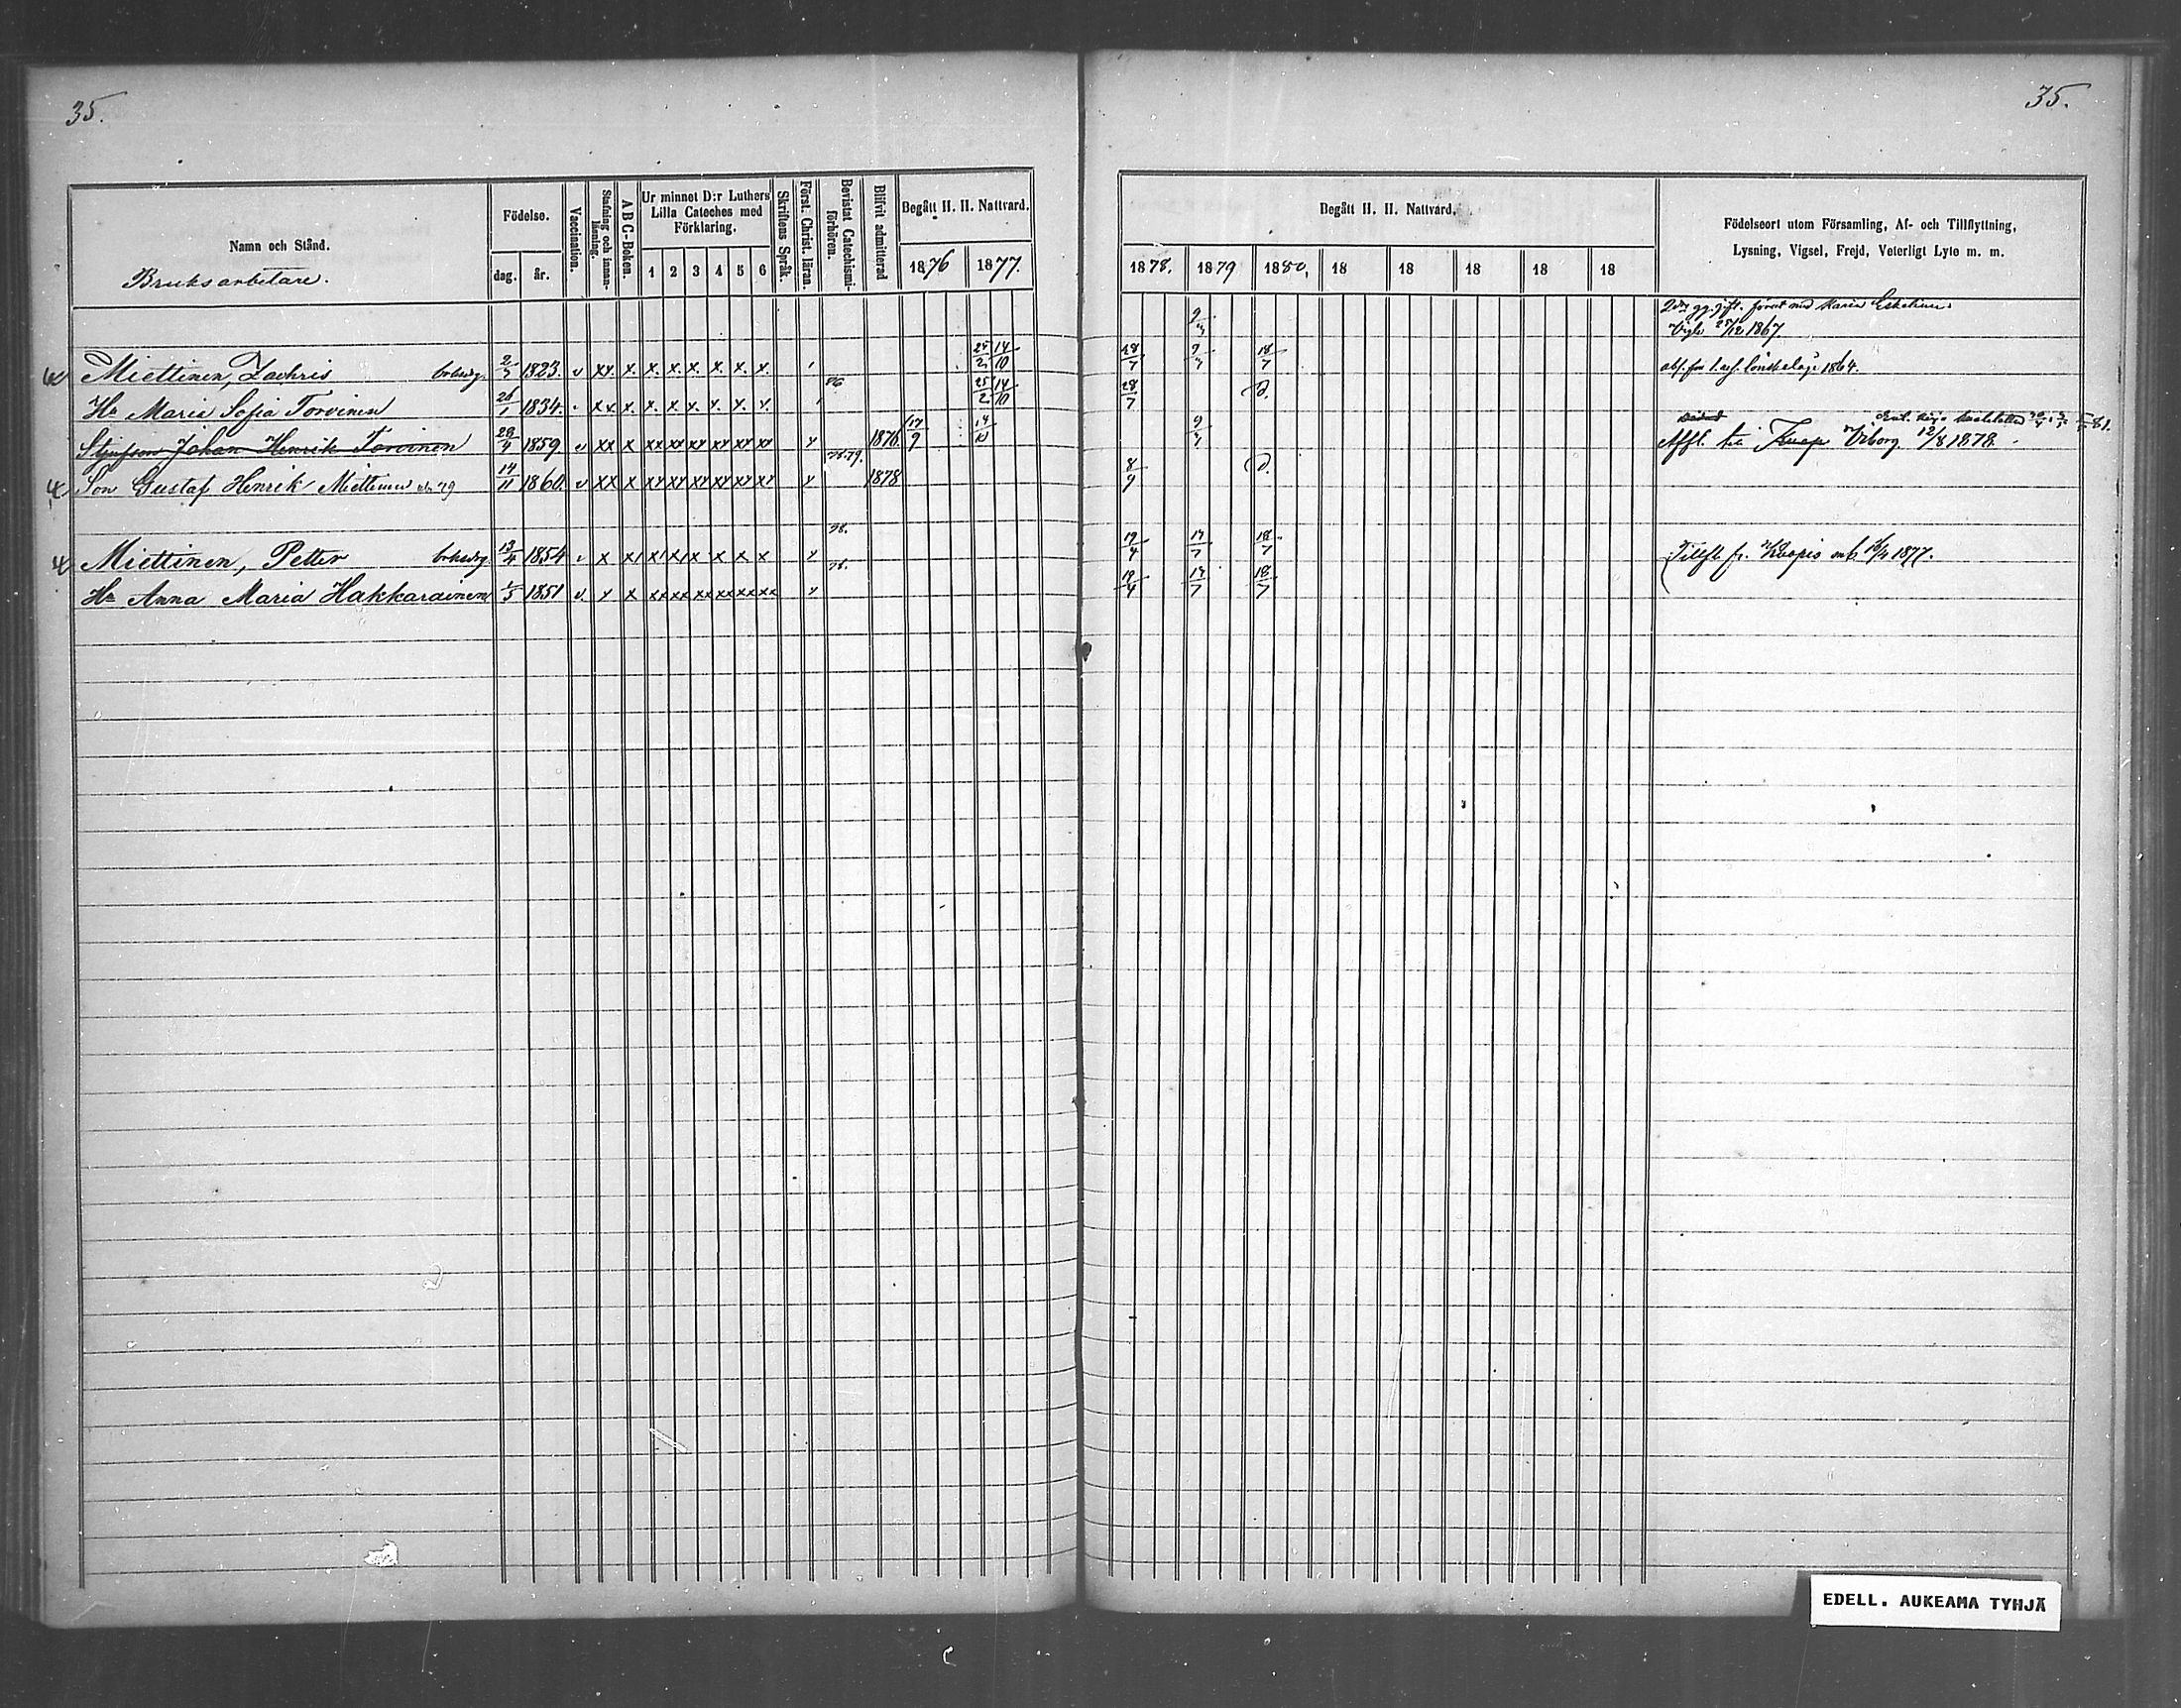 35.
35.
Namn och Stånd.
Bruksarbetare.
Födelse.
dag. år.
Vaccination.
Stafning och innanläsning.
A B C-Boken.
Ur minnet D:r Luthers Lilla Cateches med Förklaring.
1 2 3 4 5 6
Skriftens Språk.
Först. Christ. läran.
Bevistat Catechismiförhören.
Blifvit admitterad
Begått H. H. Nattvard.
1876 1877.
Begått H. H. Nattvard.
1878. 1879 1880, 18 18 18 18 18
Födelseort utom Församling, Af- och Tillflyttning,
Lysning, Vigsel, Frejd, Veterligt Lyte m. m.
9/3
2dra gg. gift. förut med Maria Eskelinen
Vigde 25/12 1867.
Miettinen, Zachris 2/3 1823. v xx x. x. x. x. x. x. x. 25/2 14/10 28/7 9/3 18/7
1864.
Hu Maria Sofia Torvinen 26/1 1834. x x. x. x. x. x. x. x. x. 76 25/2 14/10 28/7 d.
Johan Henrik Torvinen 28/4 1859 v xx x xx xx xx xx xx xx x 1876. 17/9 14/10 9/3 Affl. till Wiborg 12/8 1878.
Son Gustaf Henrik Miettinen 79 14/11 1860. v xx x xx xx xx xx xx xx x 78.79. 1878 8/9 d.
Miettinen, Petter 13/4 1854 x x x x x x x x x 78. 19/4 13/7 18/7 Tillfl. fr. Kuopio 1877.
Hu Anna Maria Hakkarainen 1/5 1851 v. x x xx xx xx xx xx xx x 78. 19/4 13/7 18/7
EDELL. AUKEAMA TYHJÄ